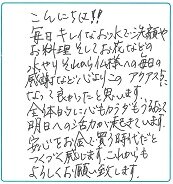 こんにちは!!
毎日キレイなお水で洗顔や
お料理そしてお花などの
水やりそれから仏様への毎日の
感謝など心よりこのアクアスに
なって良かったと思います。
全体的に心もカラダもうるおって
明日への活力が
安心をお金で買う時代だと
つくづく感じます。これからも
よろしくお願い致します。